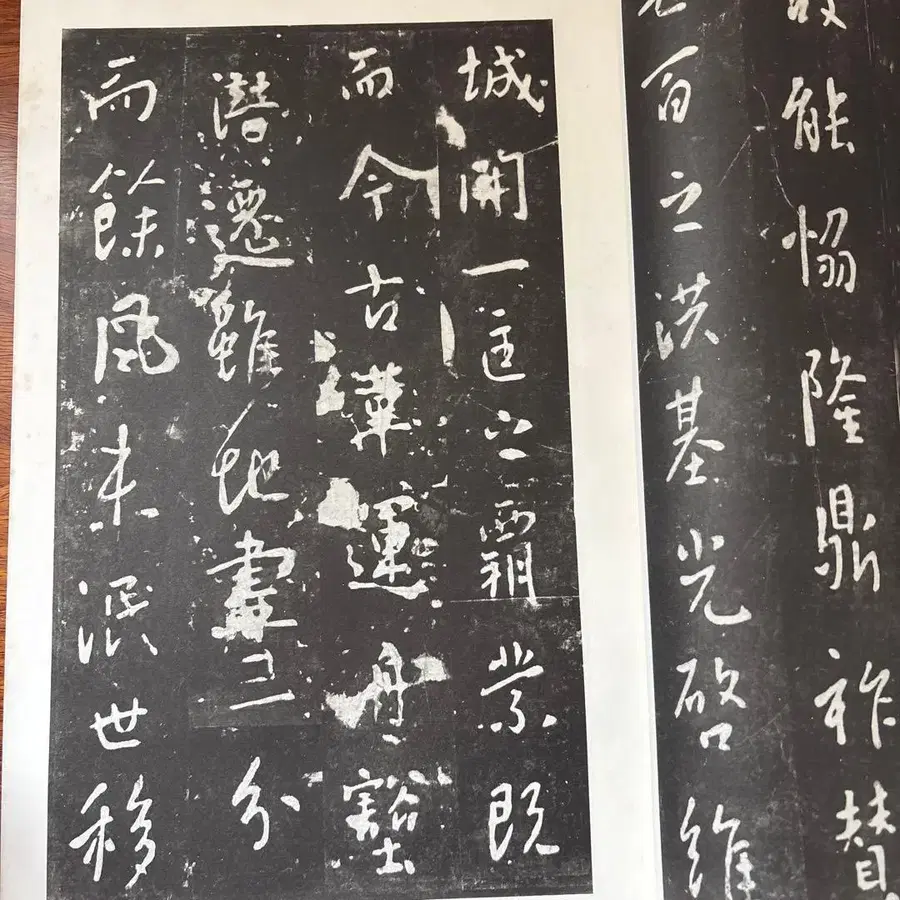 故能恊隆鼎祚贊
七百之洪基光啓維
城開一匡之覇業既
而今古革運舟壑
潛遷雖地盡三分
而餘風未泯世移